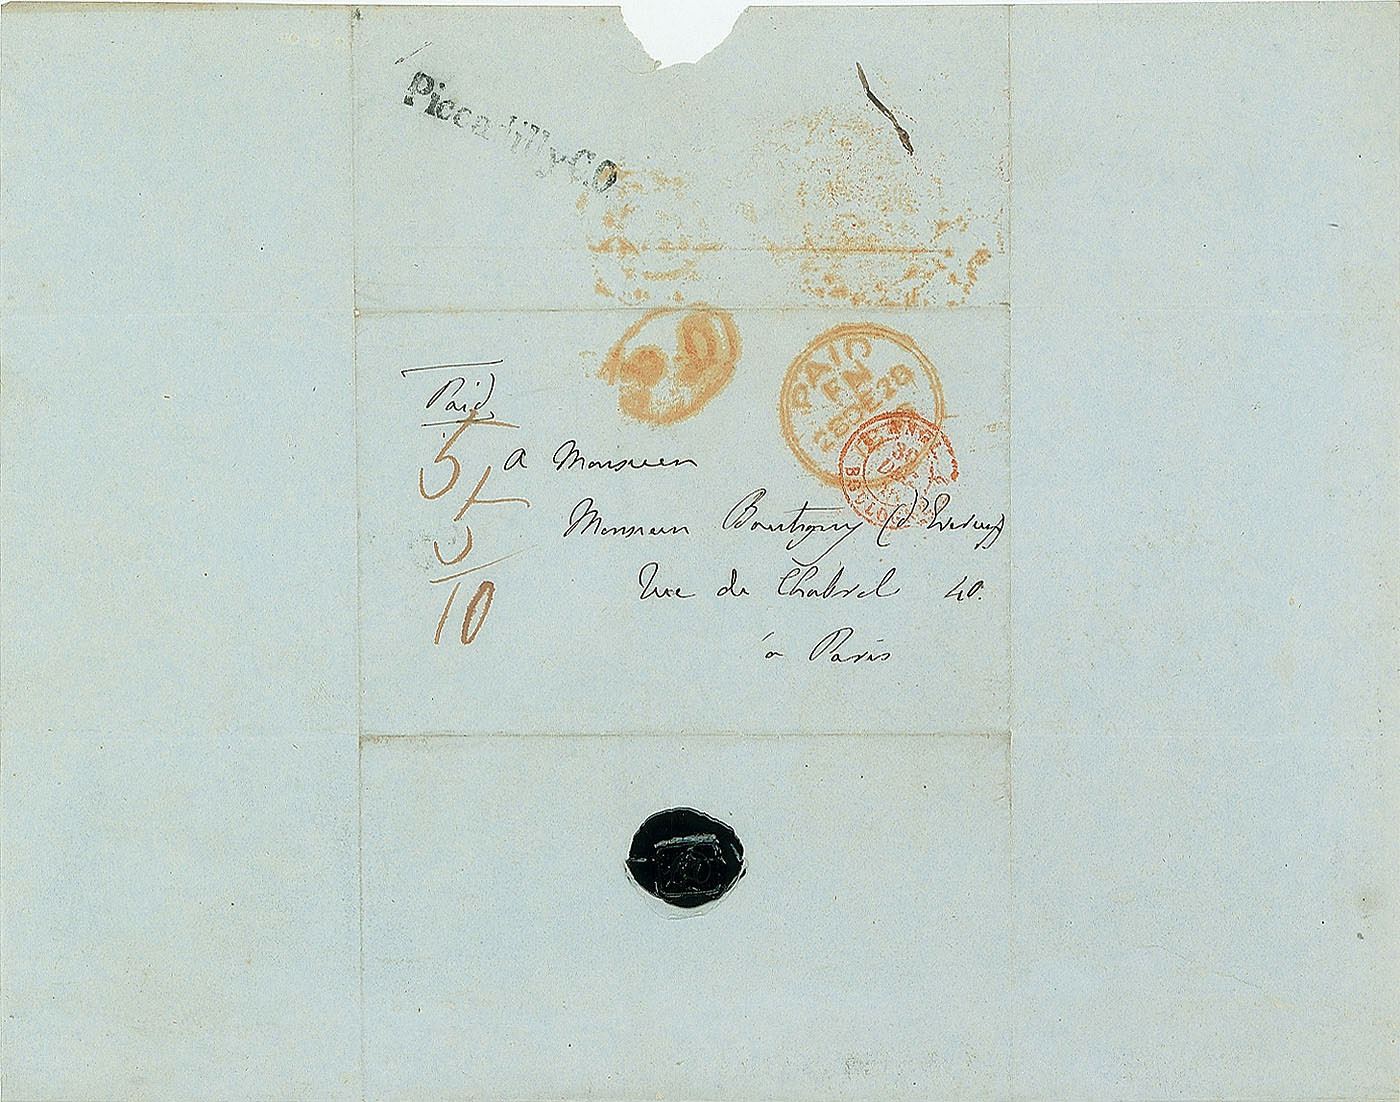 Piccadilly C.O
PAID
EN
28DE28
30
DEC
BOULOGNE
Paid
5/
5
10
a Monsieur
Monsieur Boutigny (d'Evreux)
Rue de Chabrol 40.
à Paris